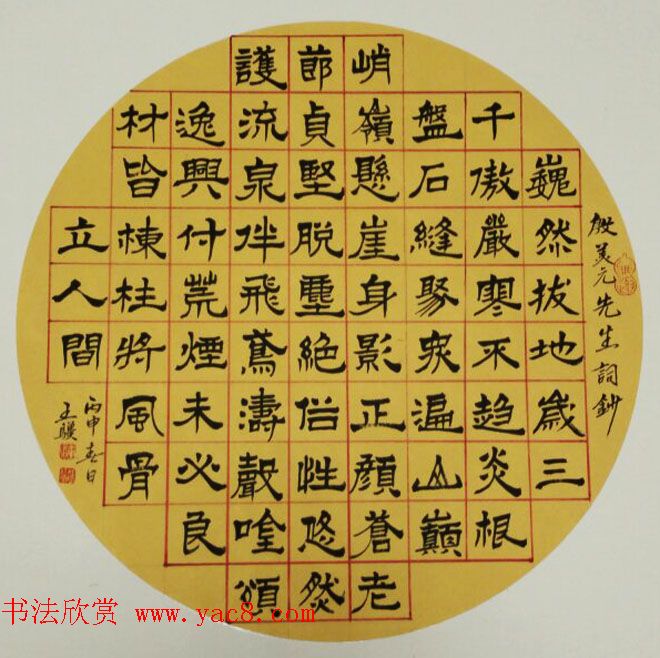 巍然拔地歲三
千傲嚴寒不趋炎根
盤石縫聚衆遍山巔
峭嶺懸崖身影正顔蒼老
節貞堅脱塵絶俗性悠然
護流泉伴飛鳶濤聲唯頌
逸興付荒煙未必良
材皆棟柱將風骨
立人間
殷美元先生詞鈔
丙申春日
王
书法欣赏 www.yac8.com